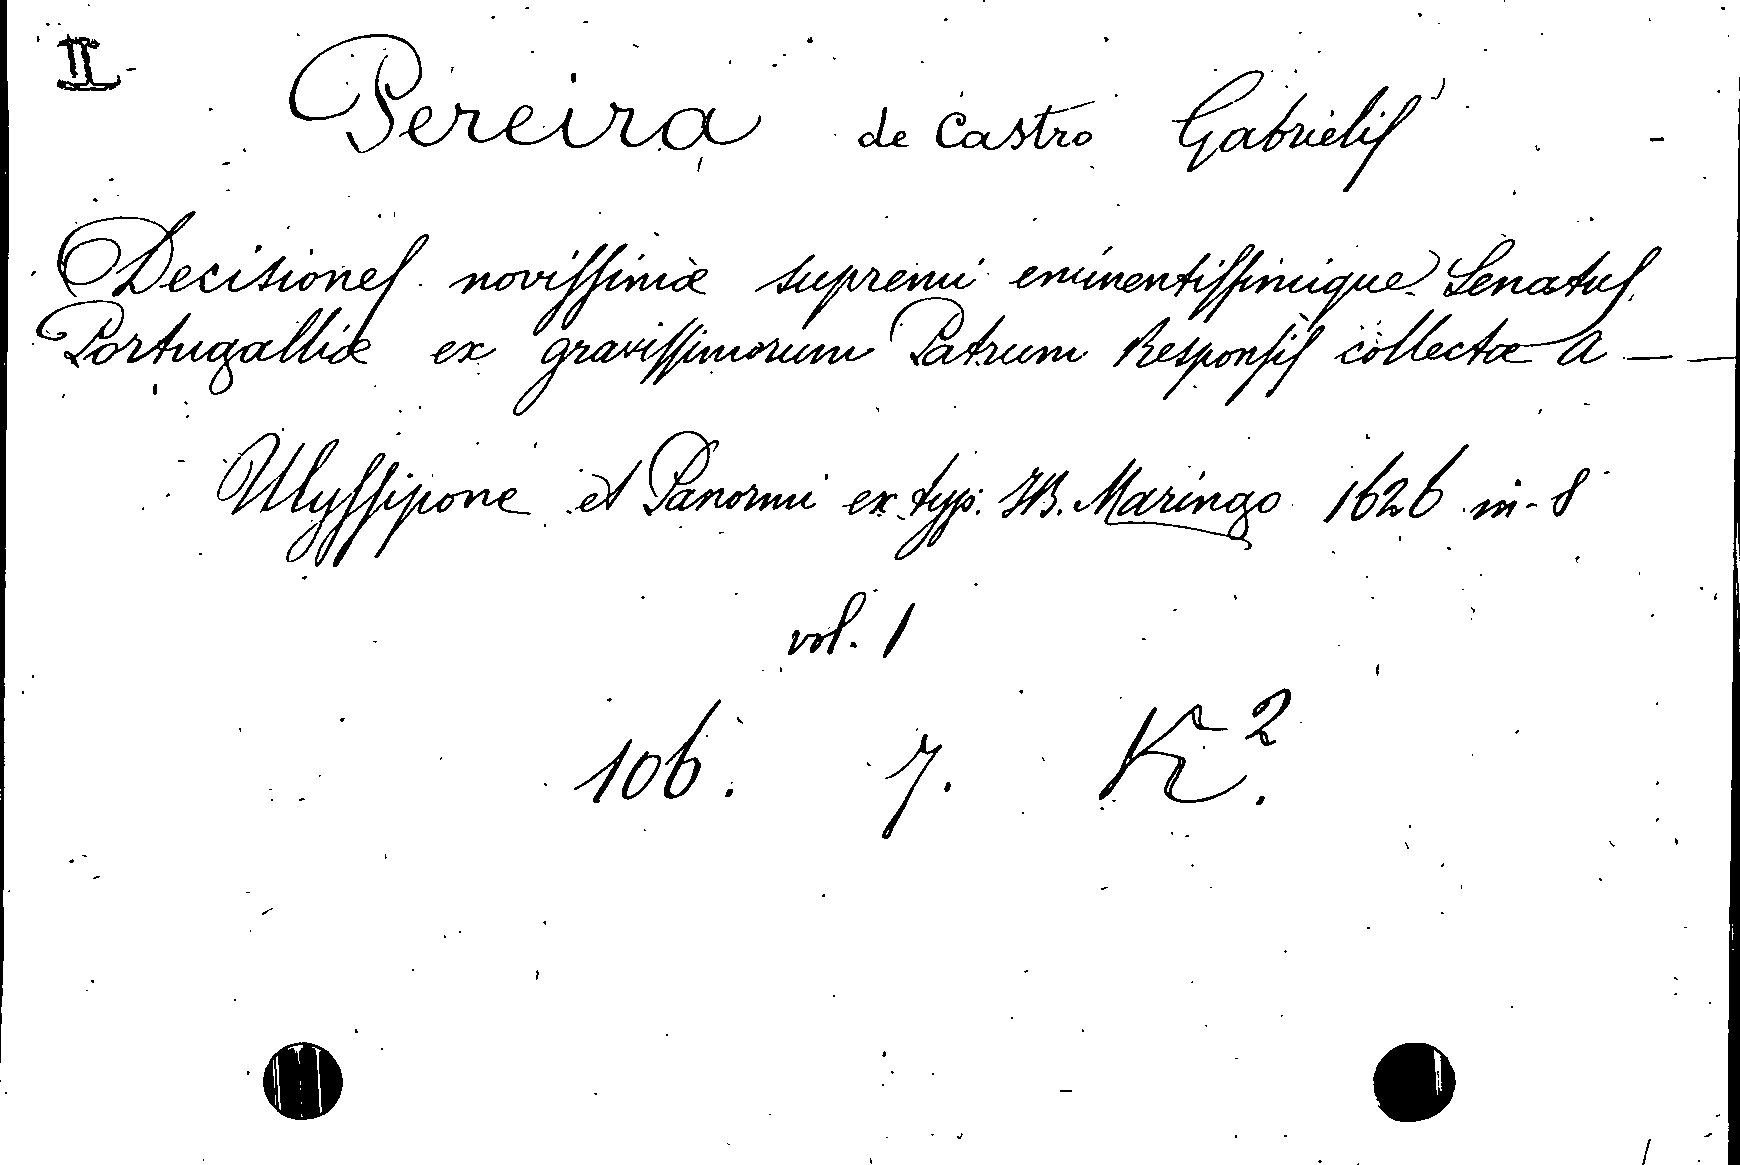 II
Pereira de Castro Gabrielis
Decisiones novissimæ supremi eminentissimique Senatus
Portugalliæ ex gravissimorum Patrum Responsis collectæ a — —
Ulyssipone et Panormi ex typ. JB. Maringo 1626 in-8
vol. 1
106. 7. K².